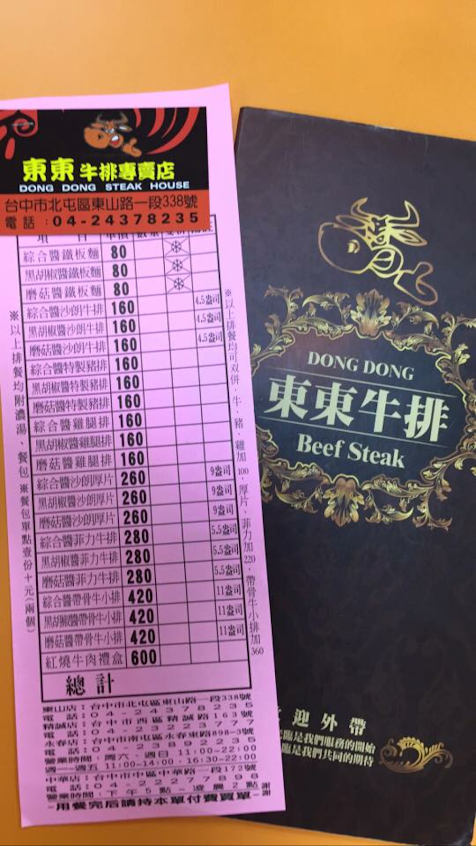 東東牛排專賣店
DONG DONG STEAK HOUSE
台中市北屯區東山路一段338號
電話：04-24378235
綜合醬鐵板麵 80
黑胡椒醬鐵板麵 80
磨菇醬鐵板麵 80
綜合醬沙朗牛排 160 4.5盎司
黑胡椒醬沙朗牛排 160 4.5盎司
磨菇醬沙朗牛排 160 4.5盎司
綜合醬特製豬排 160
黑胡椒醬特製豬排 160
磨菇醬特製豬排 160
綜合醬雞腿排 160
黑胡椒醬雞腿排 160
磨菇醬雞腿排 160
綜合醬沙朗厚片 260 9盎司
黑胡椒醬沙朗厚片 260 9盎司
磨菇醬沙朗厚片 260 9盎司
綜合醬菲力牛排 280 5.5盎司
黑胡椒醬菲力牛排 280 5.5盎司
磨菇醬菲力牛排 280 5.5盎司
綜合醬帶骨牛小排 420 11盎司
黑胡椒醬帶骨牛小排 420 11盎司
磨菇醬帶骨牛小排 420 11盎司
紅燒牛肉禮盒 600
總計
※以上排餐均附濃湯、餐包※餐包單點壹份十元(兩個)
※以上排餐均可双併，牛、豬、雞加100，厚片、菲力加220，帶骨牛小排加360
東山店：台中市北屯區東山路一段338號
電話：04-24378235
精誠店：台中市西區精誠路163號
電話：04-23223777
永春店：台中市南屯區永春東路898-3號
電話：04-23892235
營業時間：週六、週日 11:00-22:00
週一~週五 11:00-14:00、16:30-22:00
中華店：台中市中區中華路一段172號
電話：04-22277898
營業時間：下午5點-凌晨2點
-用餐完后請持本單付費買單-
謝謝
DONG DONG
東東牛排
Beef Steak
迎外帶
臨是我們服務的開始
臨是我們共同的期待